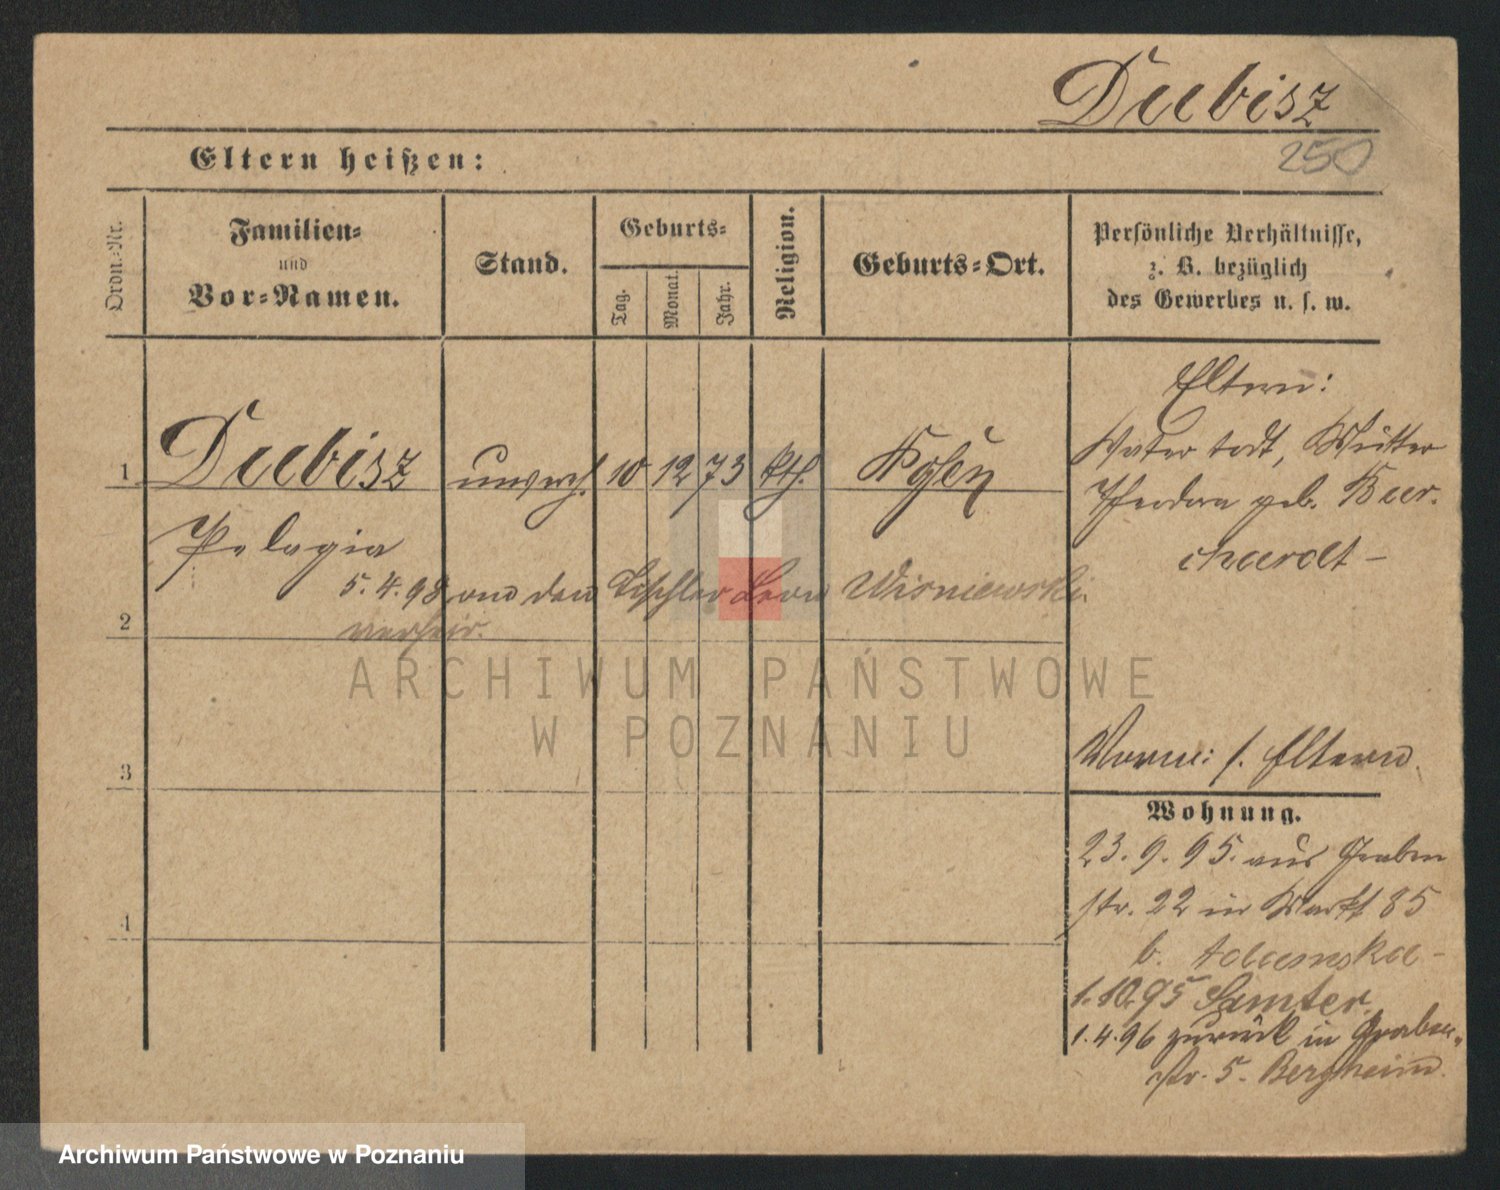 Dubisz
250
Eltern heißen:
Ordn.-Nr.
Familien-
und
Vor-Namen.
Stand.
Geburts-
Tag.
Monat.
Jahr.
Religion.
Geburts-Ort.
Persönliche Verhältnisse,
z. B. bezüglich
des Gewerbes u. s. w.
Eltern:
Vater todt, Mutter
Theodora geb. Bur-
chardt -
1 Dubisz unverh. 10 12 73 kth. Posen
Pelagia
5.4.98 den Tischler Leon Wisniewski
verheir.
2
3
4
Vorm: s. Eltern.
Wohnung.
23.9.95. aus Graben
str. 22 in Markt 85
b. Adamska -
1.10.95 Samter.
1.4.96 zurück in Graben-
str. 5. Bergheim.
ARCHIWUM PAŃSTWOWE
W POZNANIU
Archiwum Państwowe w Poznaniu